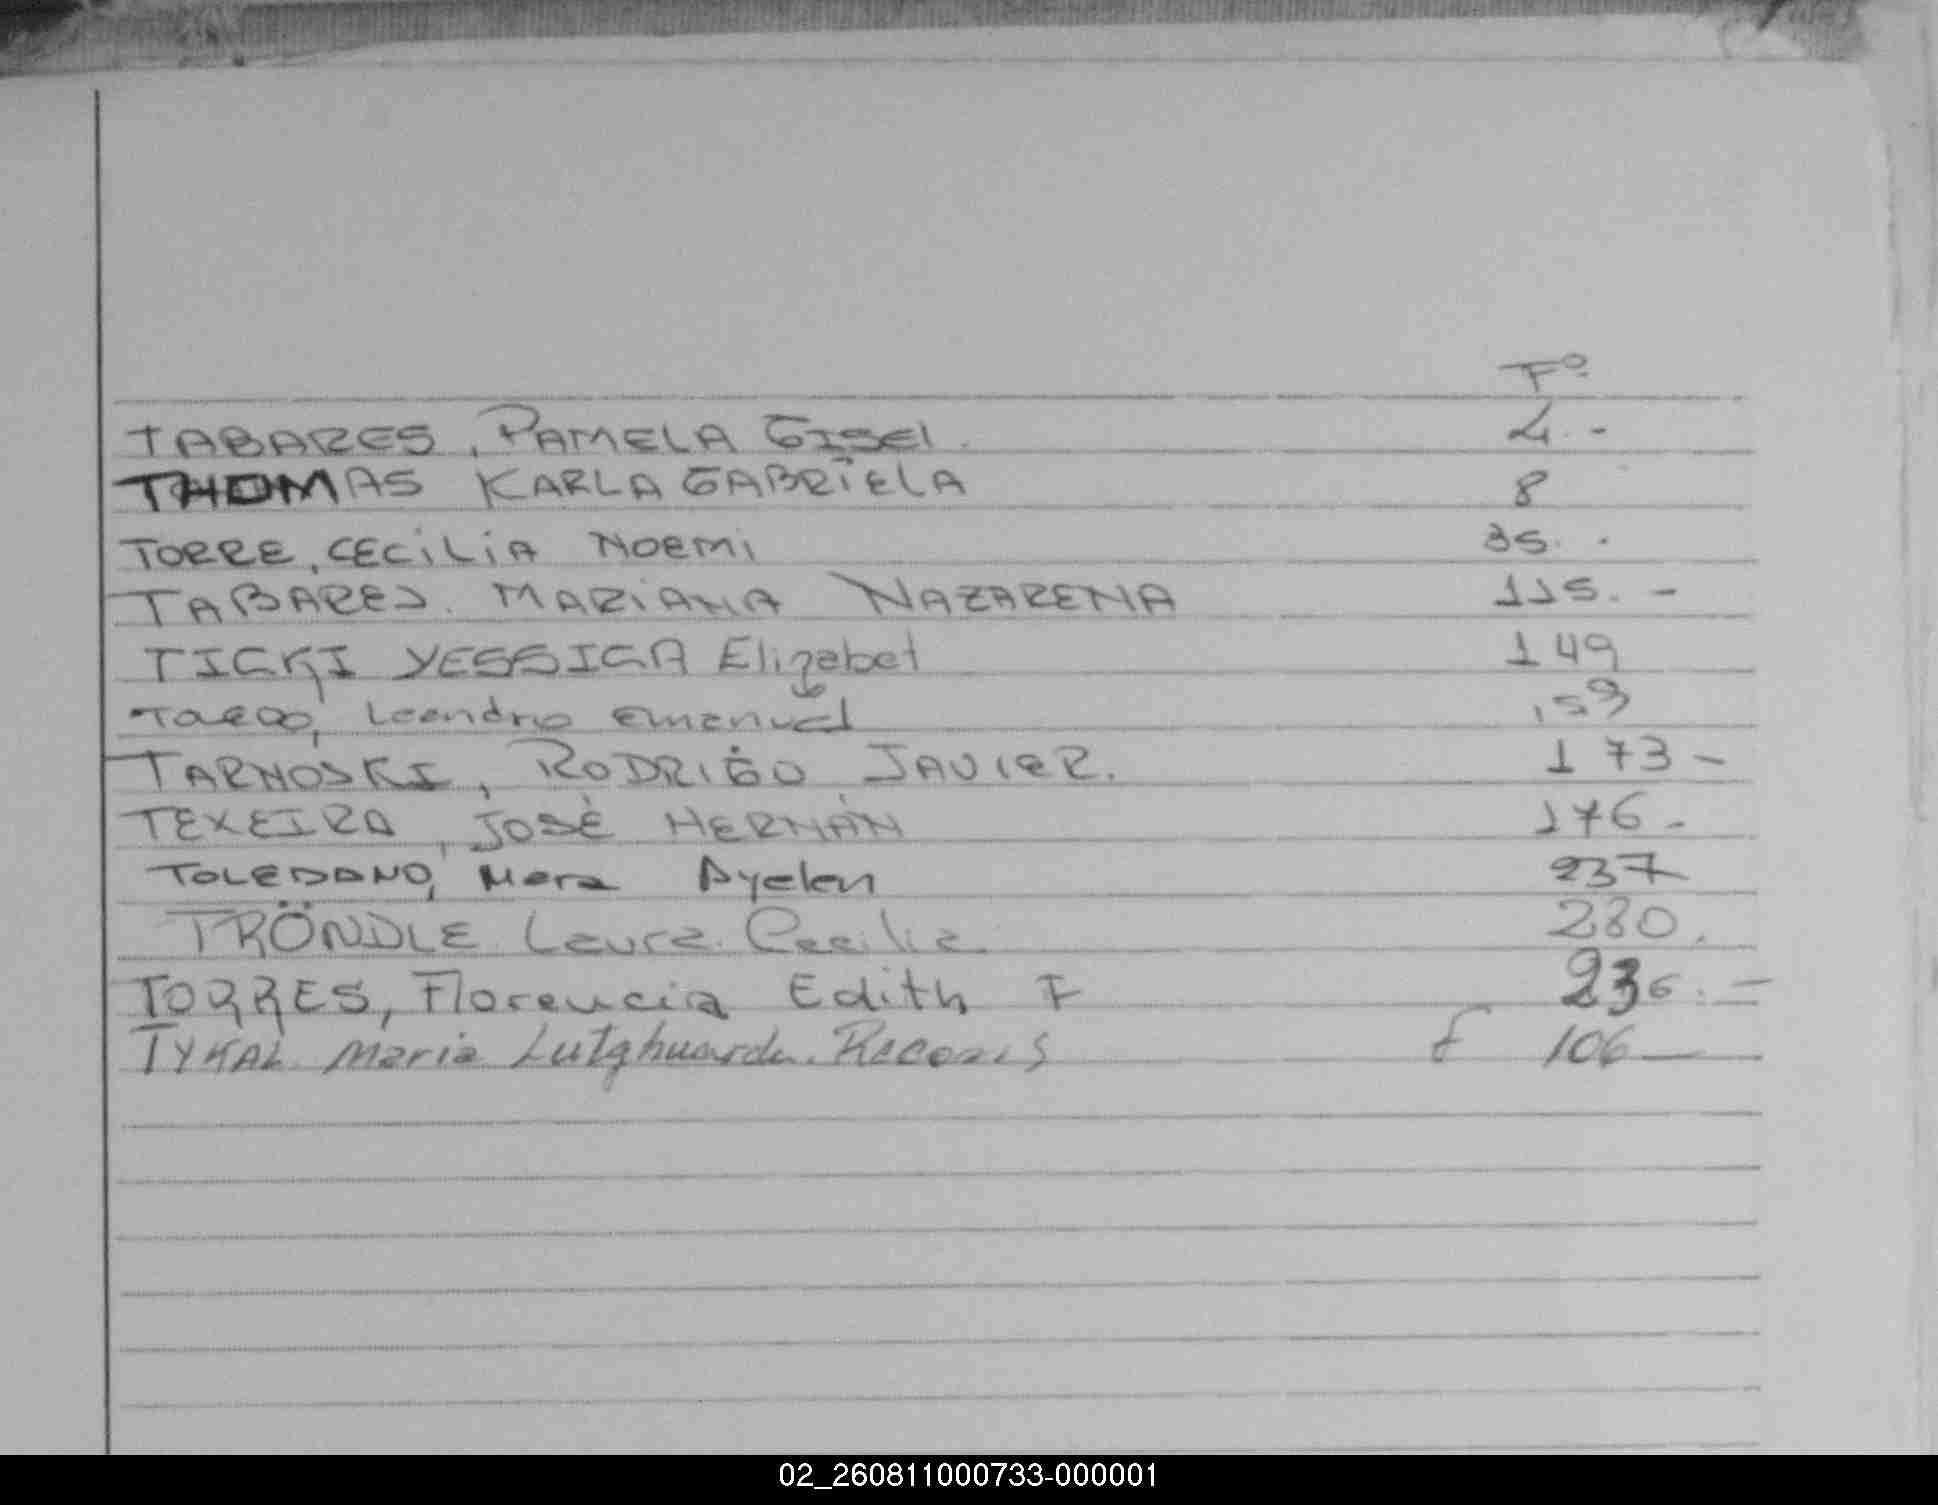 Fº
TABARES, PAMELA GISEl. 4.-
THOMAS KARLA GABRIELA 8
TORRE, CECILIA NOEMI 35. .
TABARES. MARIANA NAZARENA 115. -
TICKI YESSICA Elizabet 149
Leandro Emanuel 159
TARNOSKI, RODRIGO JAVIER. 173 -
TEXEIRA, JOSÉ HERNÁN 176 -
TOLEDANO, Mara Ayelen 237
TRÖNDLE Laura Cecilia 280.
TORRES, Florencia Edith F 236. -
TYKAL. Maria f 106 —
02_260811000733-000001